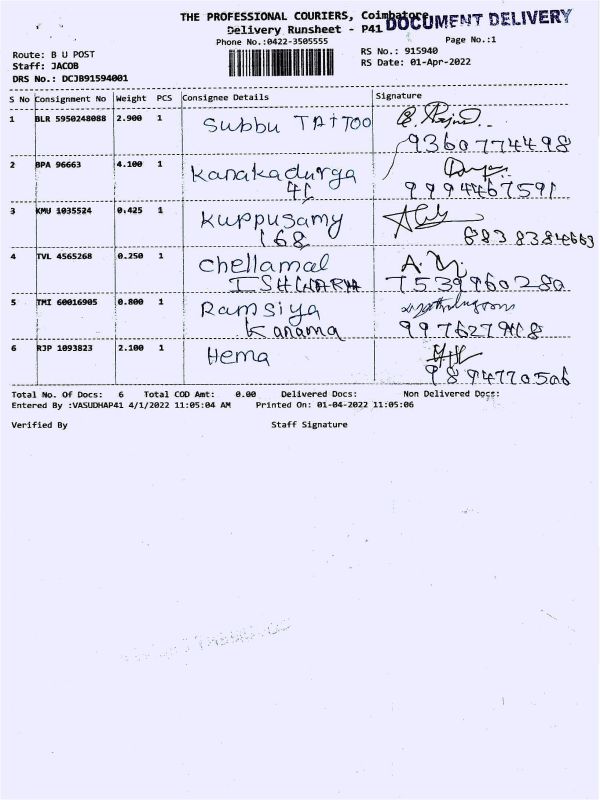 THE PROFESSIONAL COURIERS, Coimbatore
DOCUMENT DELIVERY
Delivery Runsheet - P41
Phone No.:0422-3505555
Page No.:1
Route: B U POST
RS No.: 915940
Staff: JACOB
RS Date: 01-Apr-2022
DRS No.: DCJB91594001
S No Consignment No Weight PCS Consignee Details Signature
1 BLR 5950248088 2.900 1 Subbu TATTOO
9360774498
2 BPA 96663 4.100 1 Kanakadurga
41
9994467591
3 KMU 1035524 0.425 1 Kuppusamy
168
6838384663
4 TVL 4565268 0.250 1 Chellamal A.M.
ISHWARYA 7539960280
5 TMI 60016905 0.800 1 Ramsiya
Kanama
6 RJP 1093823 2.100 1 Hema
9894770506
Total No. Of Docs: 6 Total COD Amt: 0.00 Delivered Docs: Non Delivered Docs:
Entered By :VASUDHAP41 4/1/2022 11:05:04 AM Printed On: 01-04-2022 11:05:06
Verified By Staff Signature